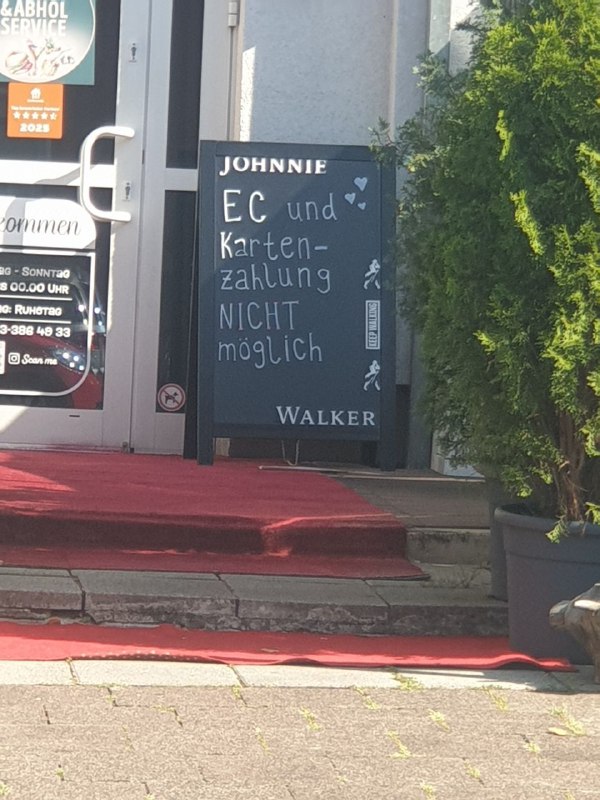 &ABHOL
SERVICE
2025
kommen
AG - SONNTAG
S 00.00 UHR
G: RUHETAG
3-386 49 33
Scan me
JOHNNIE
EC und
Karten-
zahlung
NICHT
möglich
KEEP WALKING
WALKER